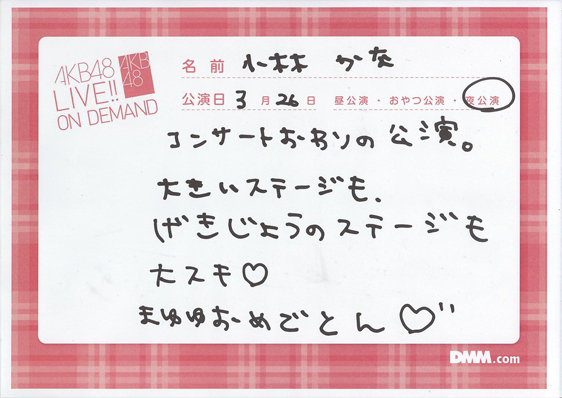 AKB48
LIVE!!
ON DEMAND
AKB
48
名前 小林 かな
公演日 3 月 26 日 昼公演・おやつ公演・夜公演
コンサートおわりの公演。
大きいステージも、
げきじょうのステージも
大スキ♡
まゆゆおーめでとん♡"
DMM.com